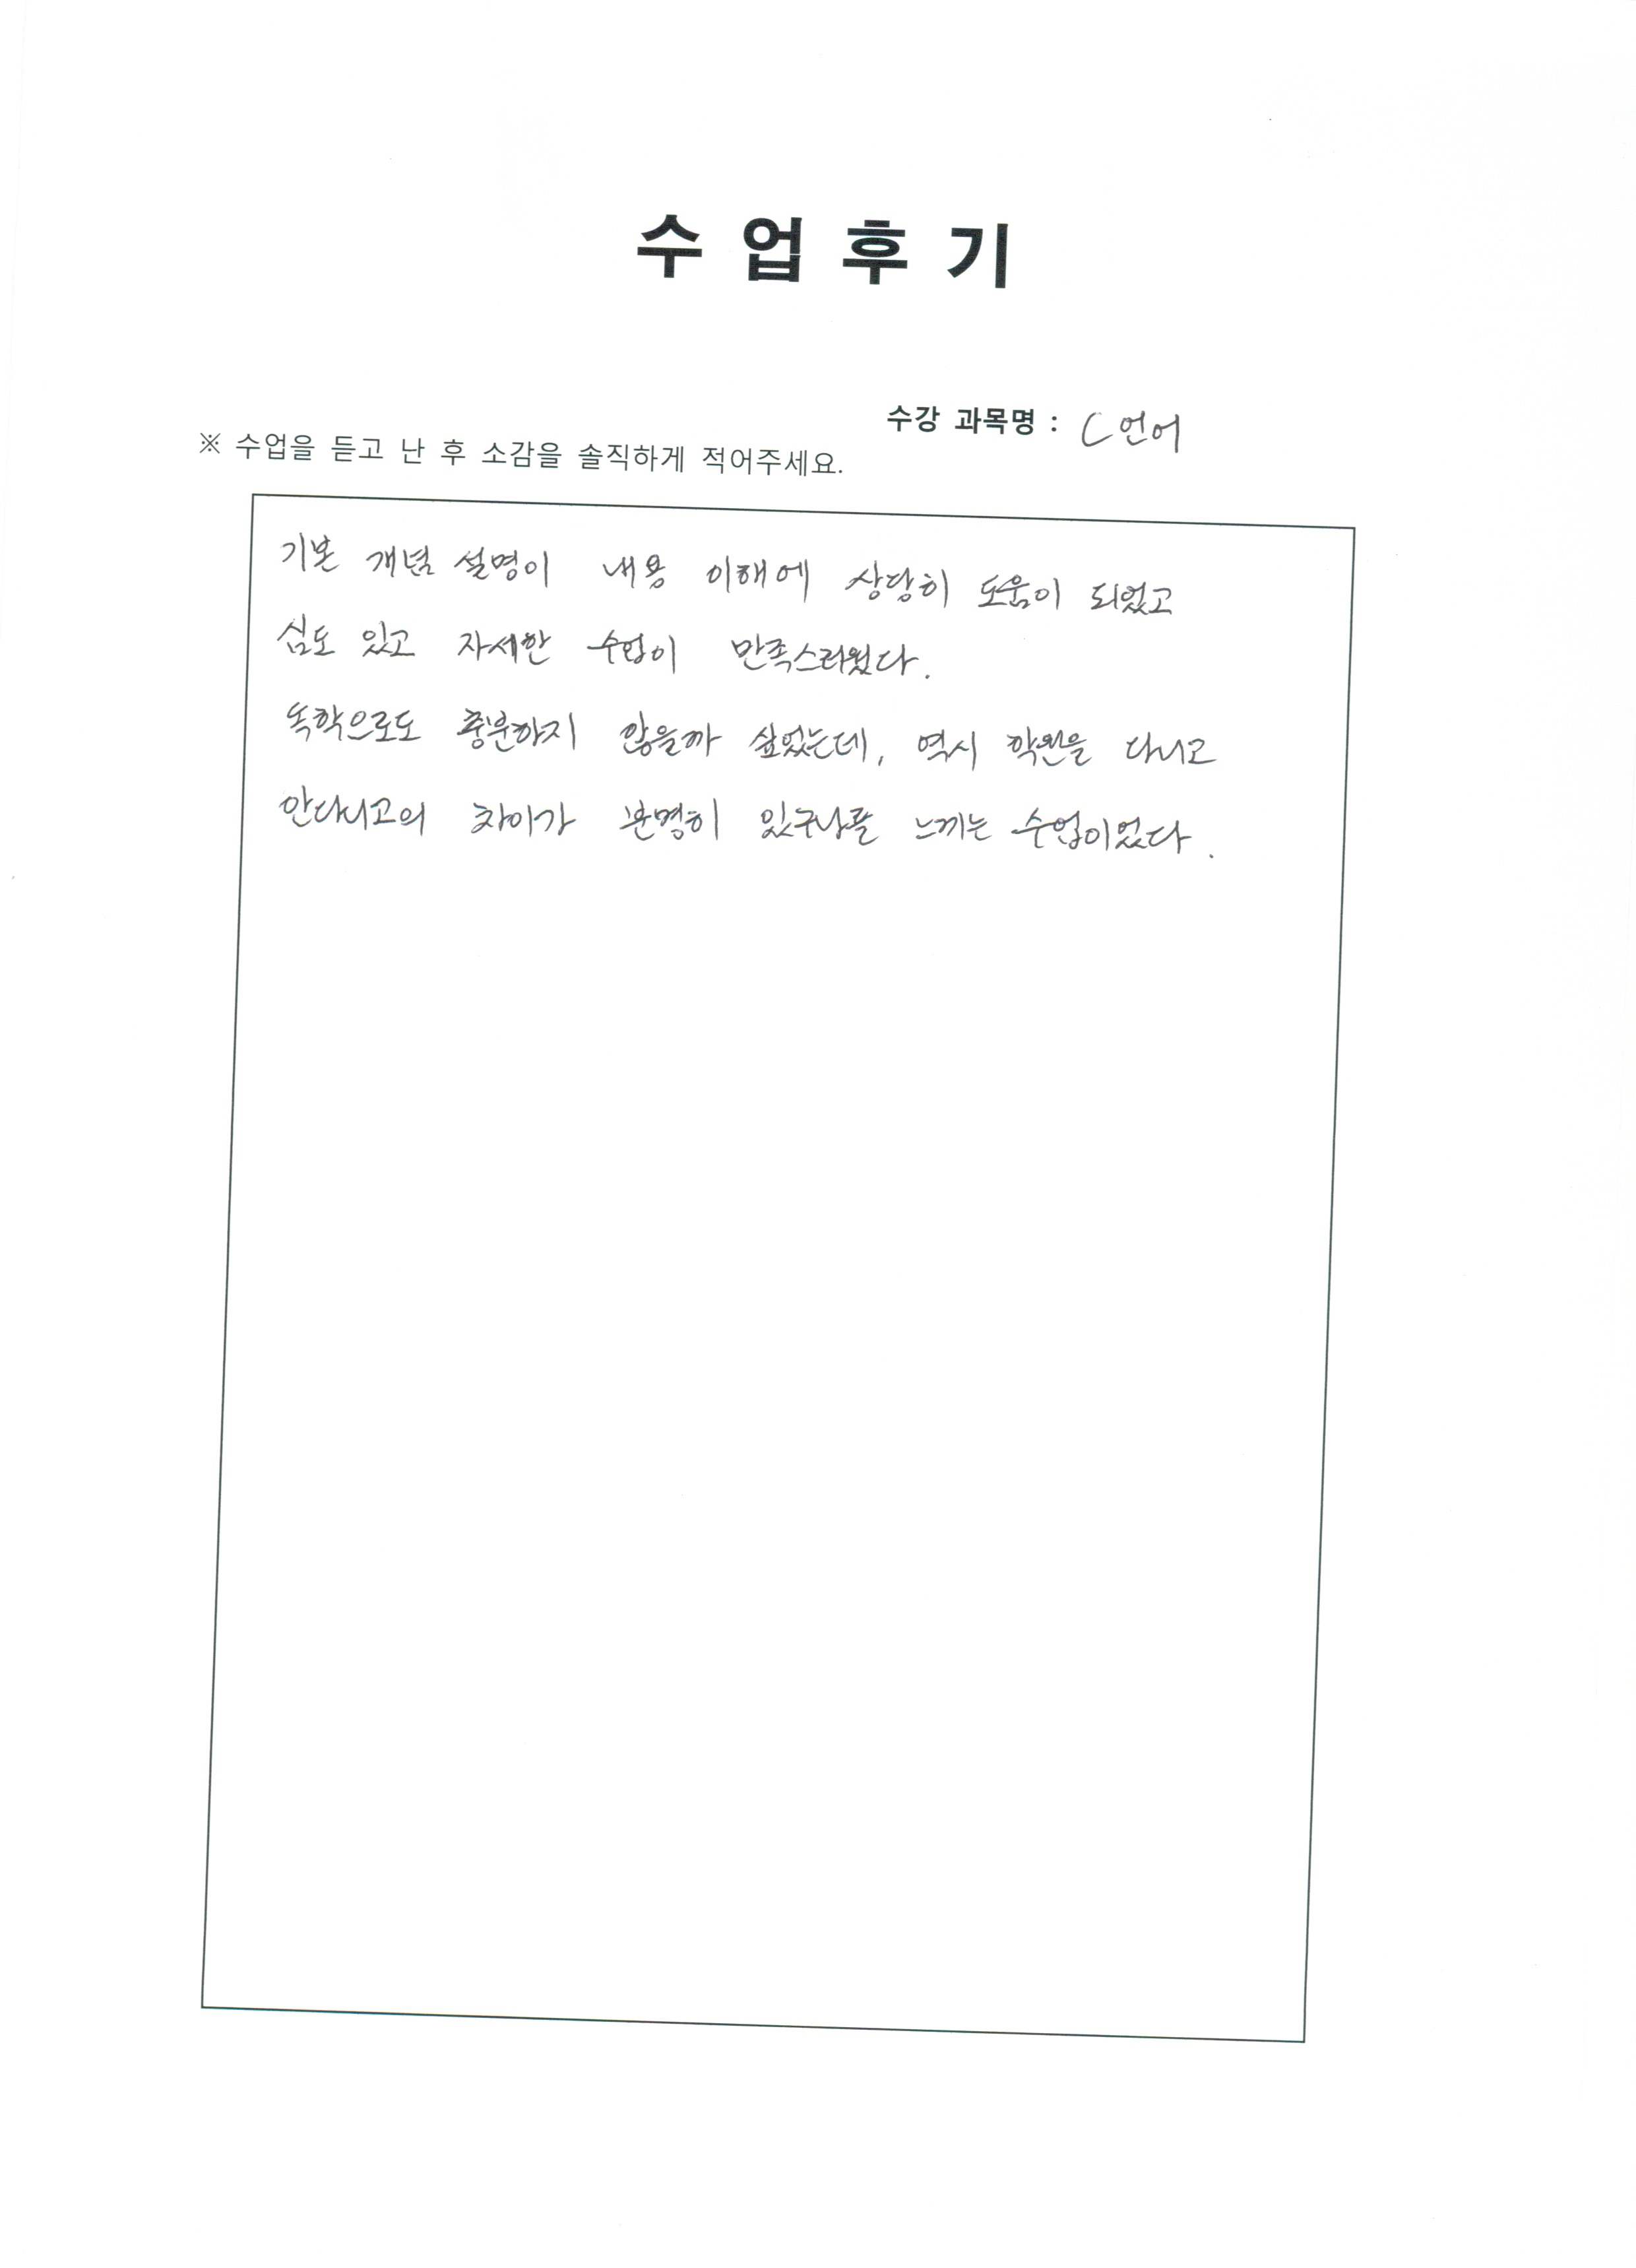 수 업 후 기
수강 과목명 : C언어
※ 수업을 듣고 난 후 소감을 솔직하게 적어주세요.
기본 개념 설명이 내용 이해에 상당히 도움이 되었고
심도 있고 자세한 수업이 만족스러웠다.
독학으로도 충분하지 않을까 싶었는데, 역시 학원을 다니고
안다니고의 차이가 분명히 있구나를 느끼는 수업이었다.